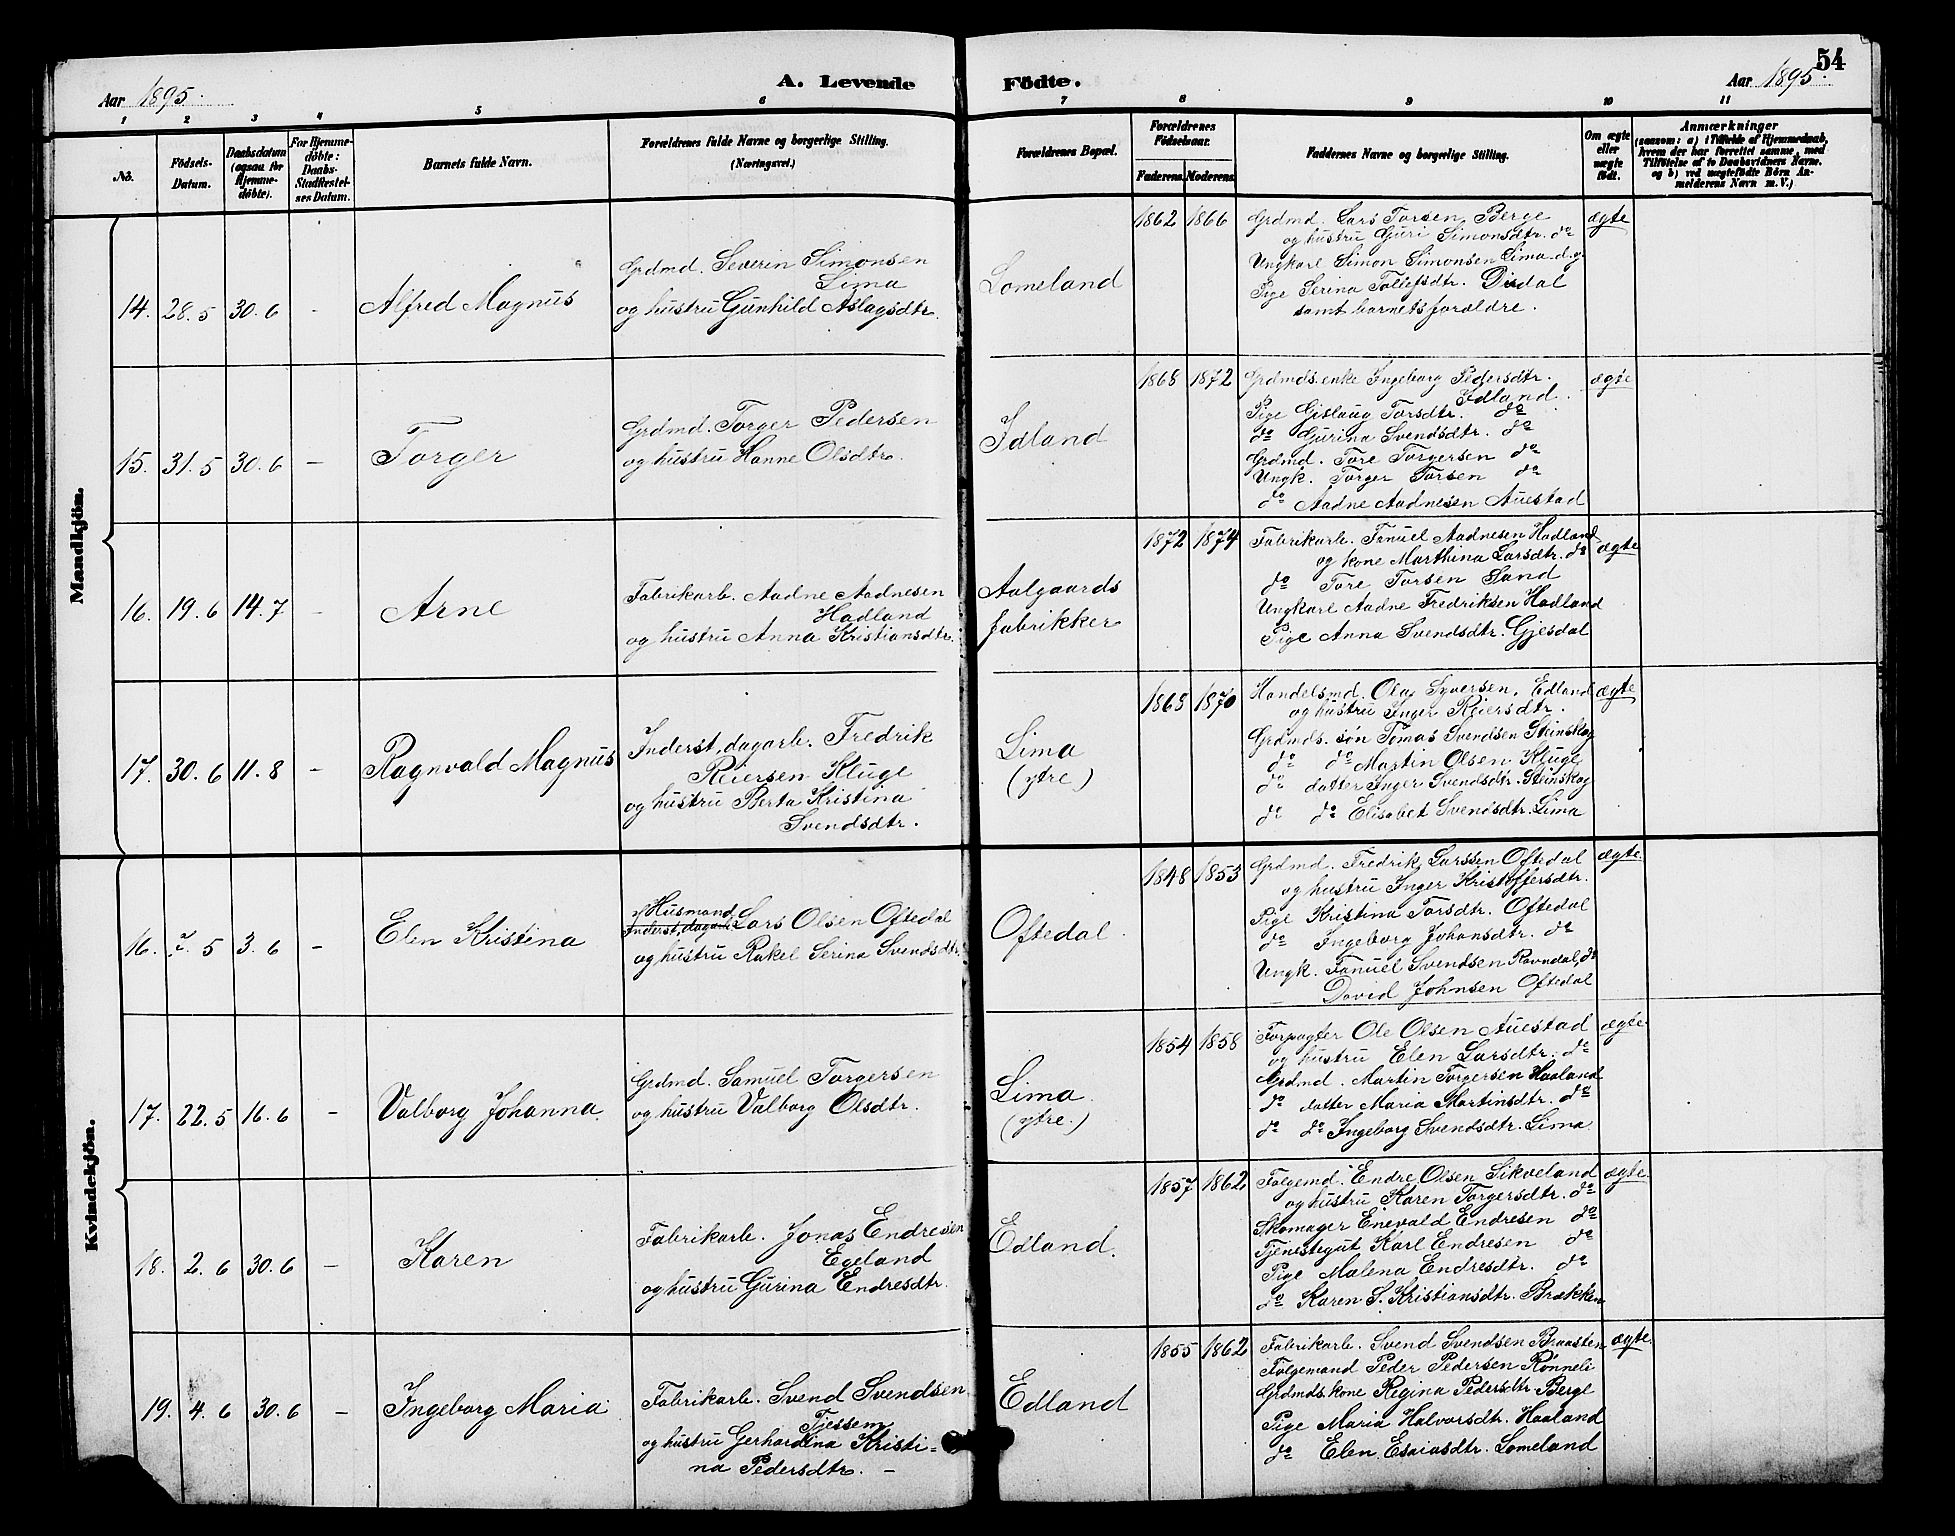 54
Aar 1895.
A. Levende
Födte.
Aar 1895.
1 2 3 4 5 6 7 8 9 10 11
No.
Födsels-Datum.
Daabsdatum (ogsaa for Hjemme-döbte).
For Hjemme-döbte: Daabs-Stadfæstel-ses Datum.
Barnets fulde Navn.
Forældrenes fulde Navne og borgerlige Stilling.
(Næringsvei.)
Forældrenes Bopæl.
Forældrenes Födselsaar.
Faderens. Moderens.
Faddernes Navne og borgerlige Stilling.
Om ægte eller uægte födt.
Anmærkninger
(saasom: a) i Tilfælde af Hjemmedaab, hvem der har forrettet samme, med Tilföielse af to Daabsvidners Navne, og b) ved uægtefödte Börn An-melderens Navn m. V.)
Mandkjön.
14. 28.5 30.6 - Alfred Magnus
Grdmd. Severin Simonsen
Lima
og hustru Gunhild Aslagsdtr.
Lomeland
1862 1866
Grdmd. Lars Torsen Berge
og hustru Guri Simonsdtr. do
Ungkarl Simon Simonsen Lima
Pige Serina Tollefsdtr. Dirdal
samt barnets forældre.
ægte
15. 31.5 30.6 - Torger
Grdmd. Torger Pedersen
og hustru Hanne Olsdtr.
Idland
1868 1872
Grdmds. enke Ingeborg Pedersdtr.
Idland.
Pige Gislaug Torsdtr. do
do Gurina Svendsdtr. do
Grdmd. Tore Torgersen do
Ungk. Torger Torsen do
do Aadne Aadnesen Auestad
ægte
16. 19.6 14.7 - Arne
Fabrikarb. Aadne Aadnesen
Hadland
og hustru Anna Kristiansdtr.
Aalgaards
fabrikker
1872 1874
Fabrikarb. Fanuel Aadnesen Hadland
og kone Marthina Larsdtr. do
do Tore Torsen Sand
Ungkarl Aadne Fredriksen Hadland
Pige Anna Svendsdtr. Gjesdal
ægte
17. 30.6 11.8 - Ragnvald Magnus
Inderst, dagarb. Fredrik
Reiersen Kluge
og hustru Berta Kristina
Svendsdtr.
Lima
(ytre.)
1863 1870
Handelsmd. Olaf Syversen, Edland
og hustru Inger Reiersdtr.
Grdmds. søn Tomas Svendsen Steinskog
do do Martin Olsen Kluge
do datter Inger Svendsdtr. Steinskog
do do Elisabet Svendsdtr. Lima
ægte
Kvindekjön.
16. 7.5 3.6 - Elen Kristina
Husmand
Inderst, dagarb. Lars Olsen Oftedal
og hustru Rakel Serina Svendsdtr.
Oftedal.
1848 1853
Grdmd. Fredrik Larssen Oftedal
og hustru Inger Kristoffersdtr.
Pige Kristina Torsdtr. Oftedal
do Ingeborg Johansdtr. do
Ungk. Fanuel Svendsen Ravndal, do
David Johnsen Oftedal
ægte.
17. 22.5 16.6 - Valborg Johanna
Grdmd. Samuel Torgersen
og hustru Valborg Olsdtr.
Lima
(ytre.)
1854 1858
Forpagter Ole Olsen Auestad
og hustru Elen Larsdtr. do
Grdmd. Martin Torgersen Haaland
do datter Maria Martinsdtr. do
do do Ingeborg Svendsdtr. Lima
ægte.
18. 2.6 30.6 - Karen
Fabrikarb. Jonas Endresen
Egeland
og hustru Gurina Endresdtr.
Edland.
1857 1862
Følgemd. Endre Olsen Sikveland
og hustru Karen Torgersdtr. do
Skomager Enevald Endresen do
Tjenestegut Karl Endresen do
Pige Malena Endresdtr. do
do Karen S. Kristiansdtr. Brekken
ægte.
19. 4.6 30.6 - Ingeborg Maria
Fabrikarb. Svend Svendsen
Tjessem
og hustru Gerhardina Kristi-
na Pedersdtr. -
Edland
1855 1862
Fabrikarb. Svend Svendsen Braasten
Følgemand Peder Pedersen Rønneli
Grdmds. kone Regina Pedersdtr. Berge
Pige Maria Halvorsdtr. Haaland
do Elen Esaiasdtr. Lomeland
ægte.